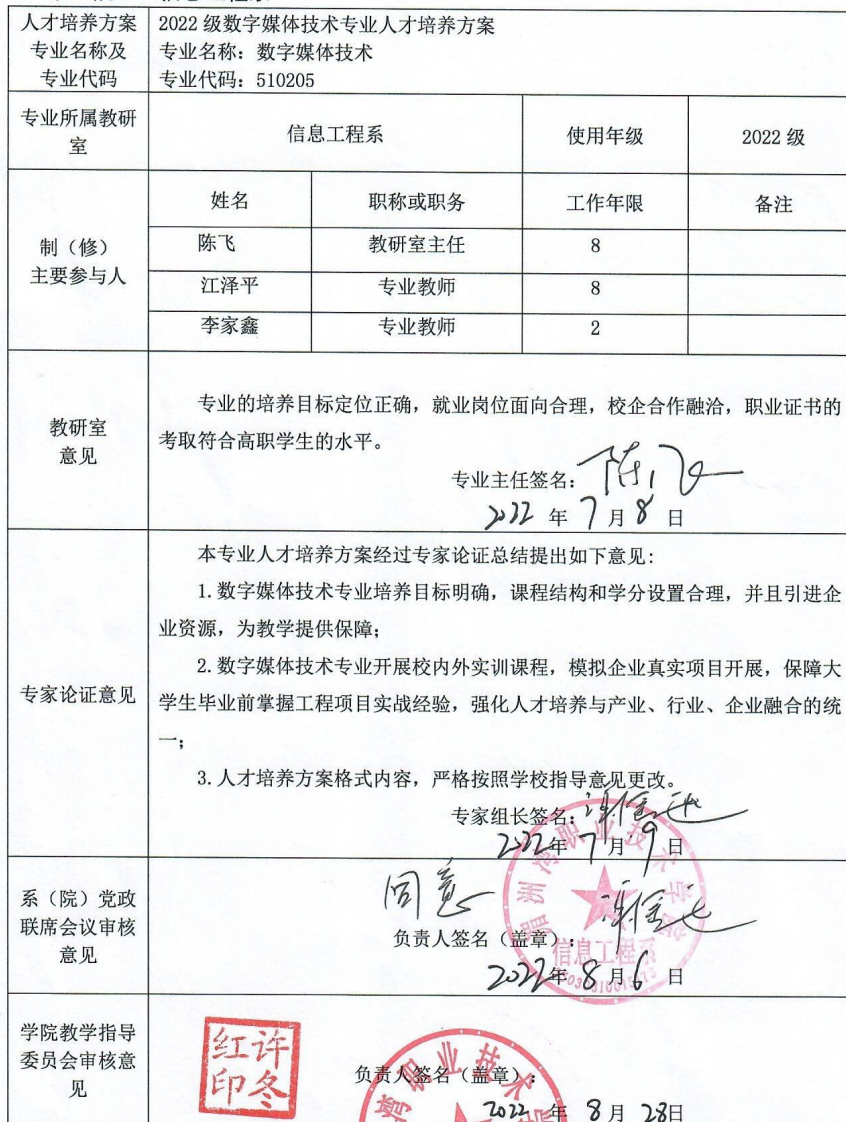 人才培养方案 2022 级数字媒体技术专业人才培养方案
专业名称及 专业名称：数字媒体技术
专业代码 专业代码：510205
专业所属教研室 信息工程系 使用年级 2022 级
制（修）
主要参与人
姓名 职称或职务 工作年限 备注
陈飞 教研室主任 8
江泽平 专业教师 8
李家鑫 专业教师 2
教研室
意见
专业的培养目标定位正确，就业岗位面向合理，校企合作融洽，职业证书的
考取符合高职学生的水平。
专业主任签名：陈飞
2022 年 7 月 8 日
专家论证意见
本专业人才培养方案经过专家论证总结提出如下意见：
1.数字媒体技术专业培养目标明确，课程结构和学分设置合理，并且引进企
业资源，为教学提供保障；
2.数字媒体技术专业开展校内外实训课程，模拟企业真实项目开展，保障大
学生毕业前掌握工程项目实战经验，强化人才培养与产业、行业、企业融合的统
一；
3.人才培养方案格式内容，严格按照学校指导意见更改。
专家组长签名：
2022年 7 月 9 日
系（院）党政
联席会议审核
意见
同意
负责人签名（盖章）：
2022年 8 月 6 日
湄洲湾职业技术学院
信息工程系
学院教学指导
委员会审核意
见
许冬红印
负责人签名（盖章）：
2022 年 8 月 28日
湾职业技术学